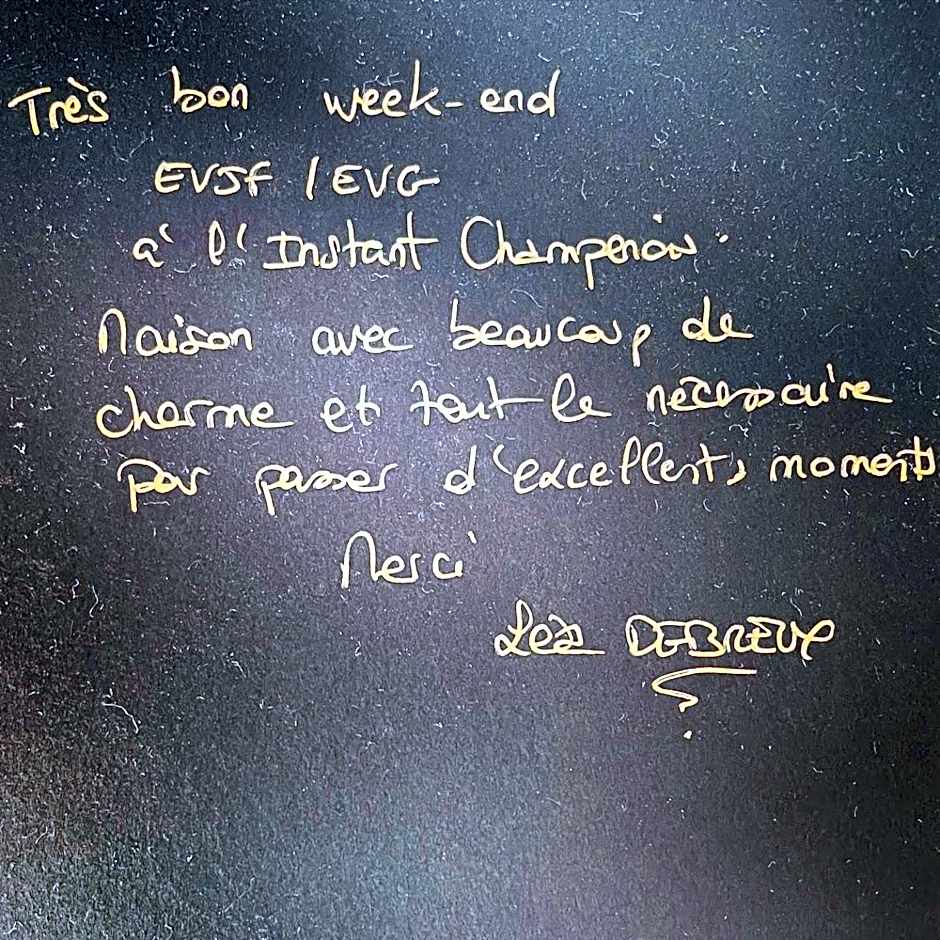 Très bon week-end
EVJF / EVG
à l'Instant Champenois.
Maison avec beaucoup de
charme et tout le nécessaire
pour passer d'excellents moments
Merci
Léa DEBREUX